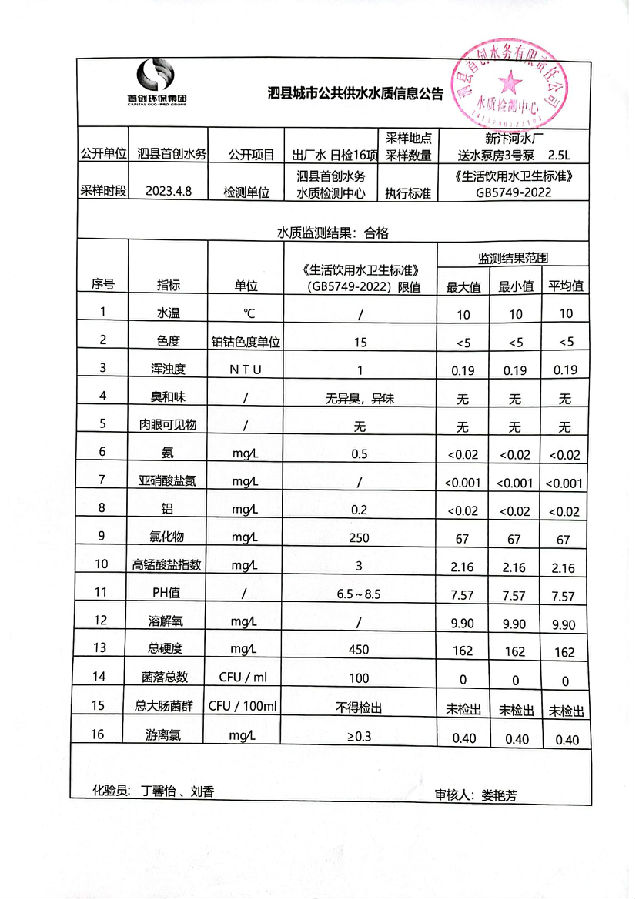 首创环保集团
泗县城市公共供水水质信息公告
泗县首创水务有限责任公司
水质检测中心
公开单位 泗县首创水务 公开项目 出厂水 日检16项 采样地点 采样数量 新汴河水厂 送水泵房3号泵 2.5L
采样时段 2023.4.8 检测单位 泗县首创水务 水质检测中心 执行标准 《生活饮用水卫生标准》 GB5749-2022
水质监测结果：合格
序号 指标 单位 《生活饮用水卫生标准》（GB5749-2022）限值 监测结果范围
最大值 最小值 平均值
1 水温 ℃ / 10 10 10
2 色度 铂钴色度单位 15 <5 <5 <5
3 浑浊度 N T U 1 0.19 0.19 0.19
4 臭和味 / 无异臭，异味 无 无 无
5 肉眼可见物 / 无 无 无 无
6 氨 mg/L 0.5 <0.02 <0.02 <0.02
7 亚硝酸盐氮 mg/L / <0.001 <0.001 <0.001
8 铝 mg/L 0.2 <0.02 <0.02 <0.02
9 氯化物 mg/L 250 67 67 67
10 高锰酸盐指数 mg/L 3 2.16 2.16 2.16
11 PH值 / 6.5～8.5 7.57 7.57 7.57
12 溶解氧 mg/L / 9.90 9.90 9.90
13 总硬度 mg/L 450 162 162 162
14 菌落总数 CFU / ml 100 0 0 0
15 总大肠菌群 CFU / 100ml 不得检出 未检出 未检出 未检出
16 游离氯 mg/L ≥0.3 0.40 0.40 0.40
化验员：丁馨怡、刘香 审核人：娄艳芳